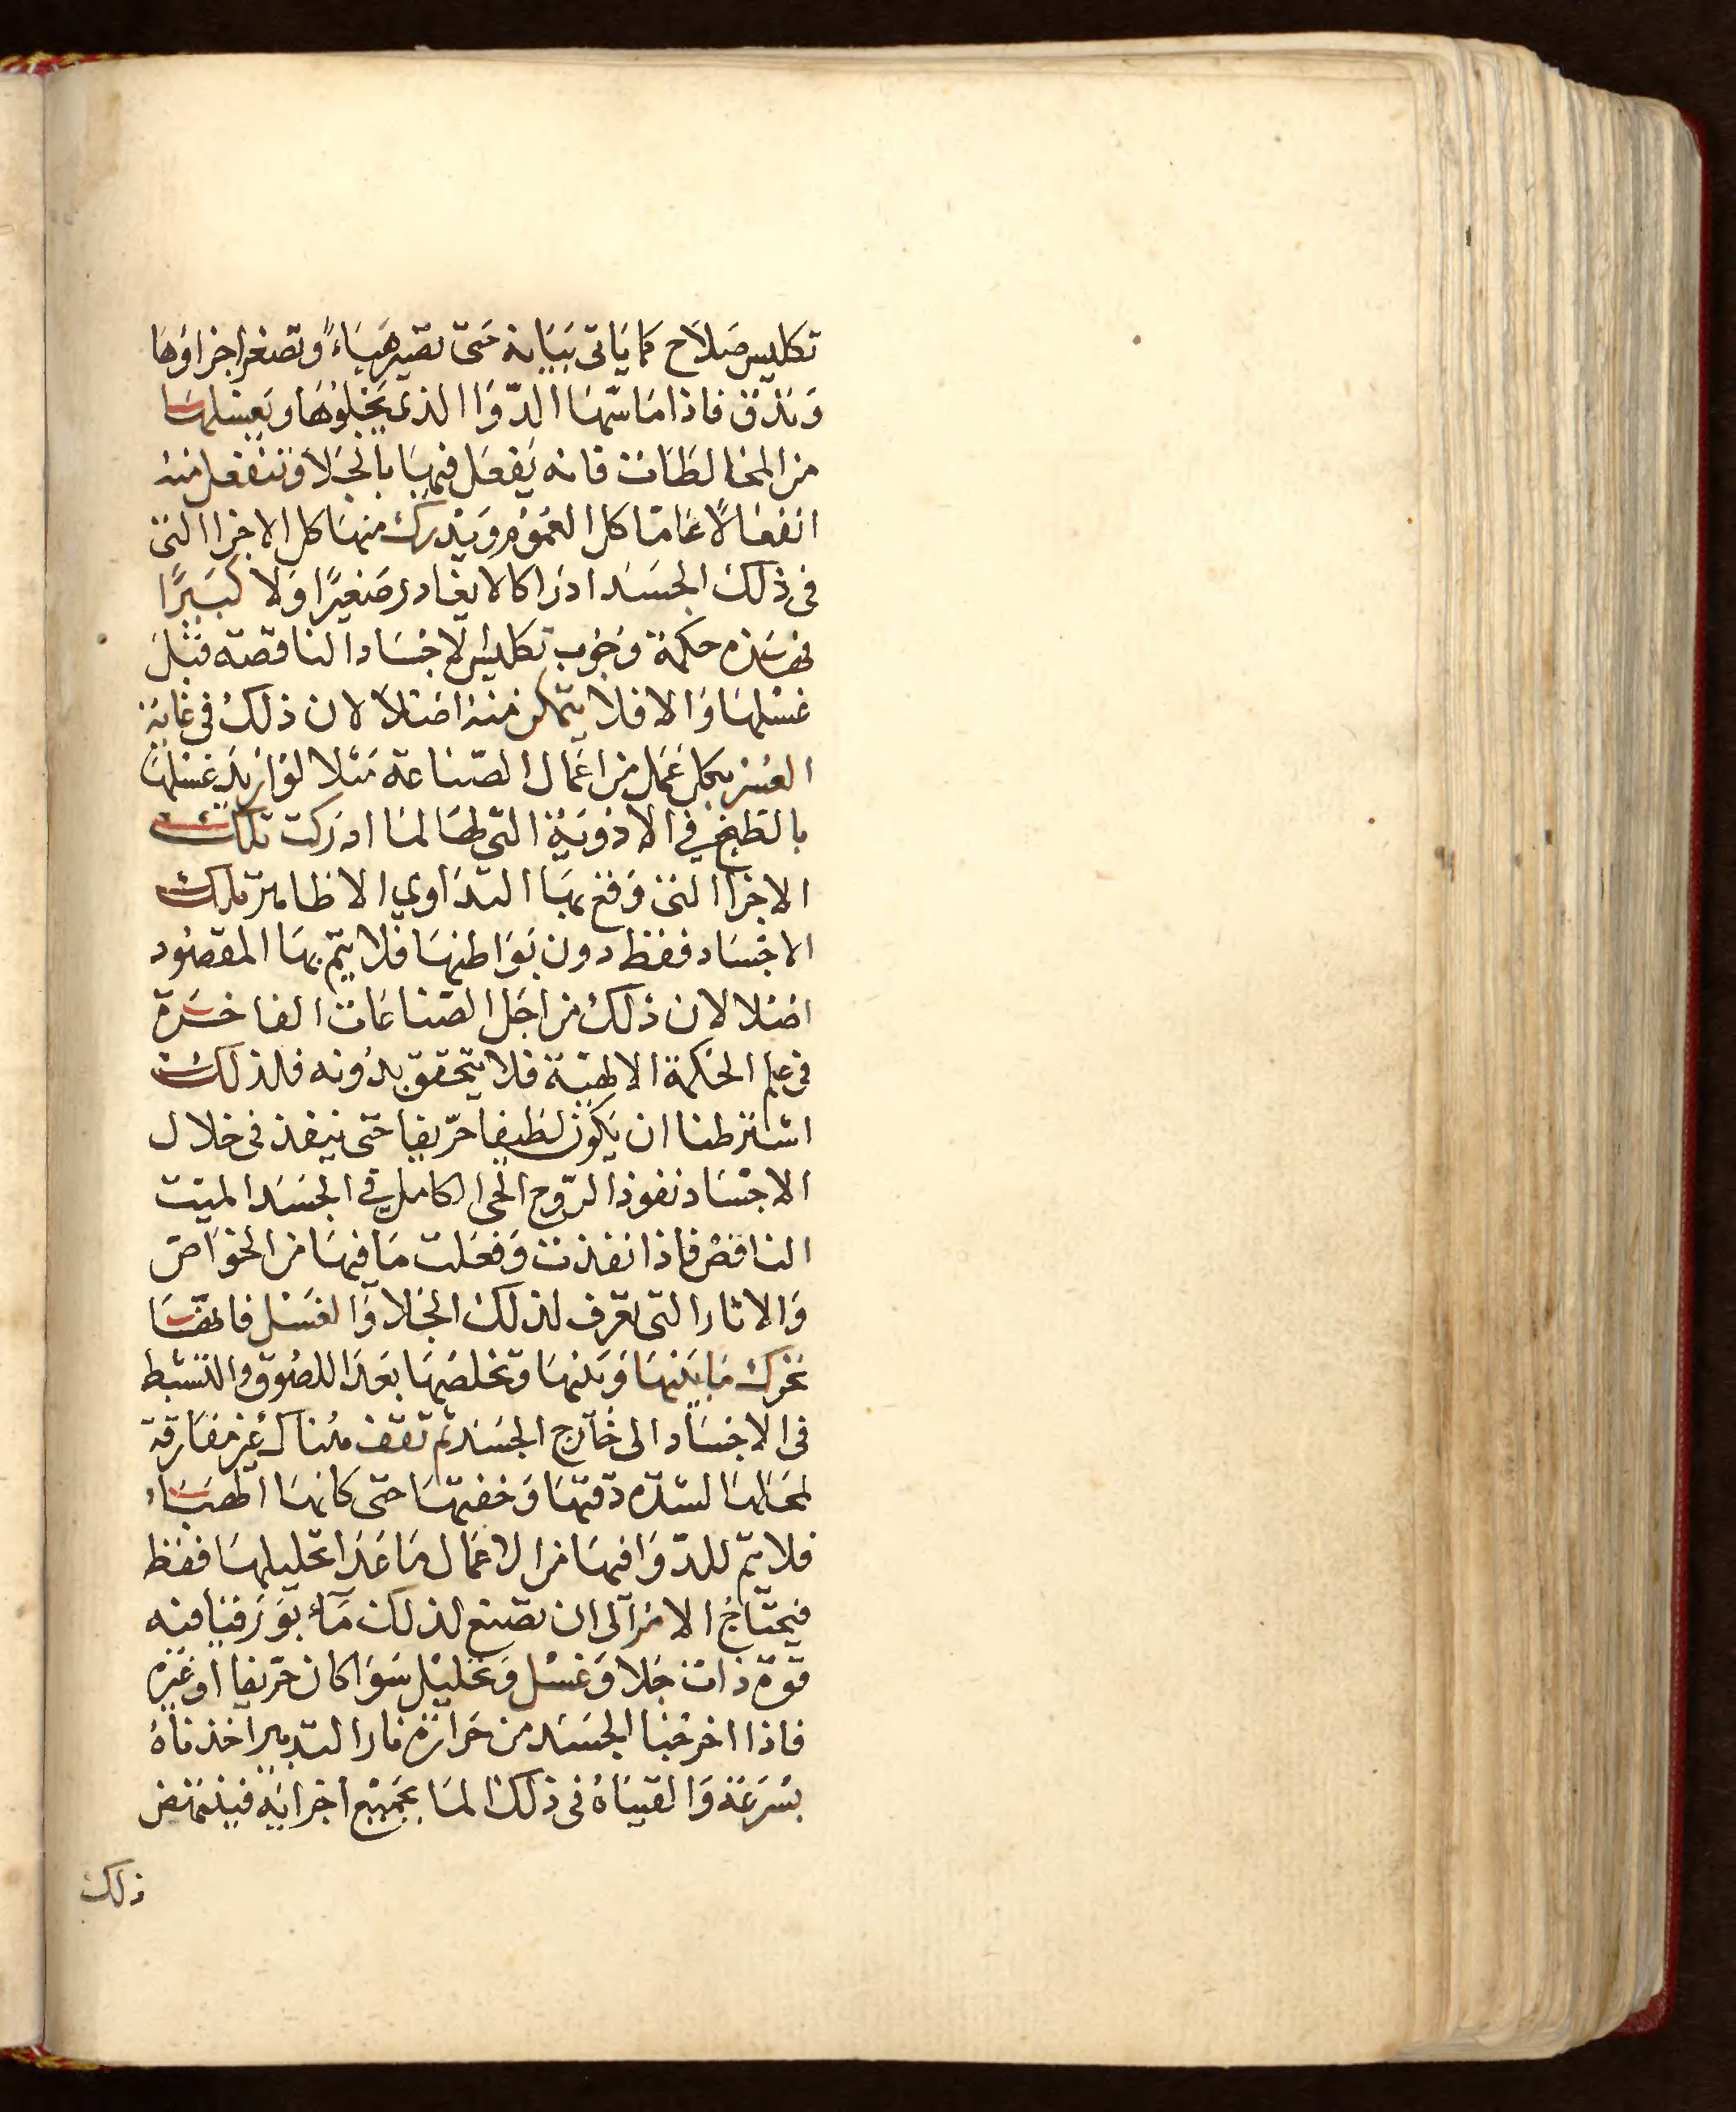 تكليس صلاح كما ياتى بيانه حتى تصير هباء وتصغر اجزاوها
وتدق فاذا ماسّها الدّوا الذى يجلوها ويغسلها
من المخالطات فانه يفعل فيها بالجلا وتنفعل منه
انفعالًا عامّا كل العموم ويدرك منها كل الاجزا التى
فى ذلك الجسد ادراكا لا يغادر صغيرًا ولا كبيرًا
فهذه حكمة وجوب تكليس الاجساد الناقصة قبل
غسلها والا فلا يتمكن منه اصلا لان ذلك فى غاية
العسر بكل عمل من اعمال الصّناعة مثلا لو اريد غسلها
بالطبخ في الادوية التى لها لما ادركت تلك
الاجزا التى وقع بها التداوي الا ظاهر تلك
الاجساد فقط دون بواطنها فلا يتم بها المقصود
اصلا لان ذلك من اجل الصّناعات الفاخرة
فى علم الحكمة الالهيّة فلا يتحقق بدونه فلذلك
اشترطنا ان يكون لطيفا حرّيفا حتى ينفذ فى خلال
الاجساد نفوذ الرّوح الحى الكامل في الجسد الميت
الناقص فاذا نفذت وفعلت ما فيها من الخواصّ
والاثار التى تعرف لذلك الجلا والغسل فانها
تحرك ما بينها وبينها وتخلصها بعد اللصوق والتشبط
فى الاجساد الى خارج الجسد ثم تقف هناك غير مفارقة
لمحالها لشدّة دقتها وخفتها حتى كانها الهباء
فلا يتم للدّوا فيها من الاعمال ما عدا تحليلها فقط
فيحتاج الامر الى ان يصنع لذلك مآء بورقيا فيه
قوة ذات جلا وغسل وتحليل سوا كان حرّيفا او غيره
فاذا اخرجنا الجسد من حرارة نار التدبير اخذناه
بسرعة والقيناه فى ذلك الما بجميع اجزايه فينتهض
ذلك